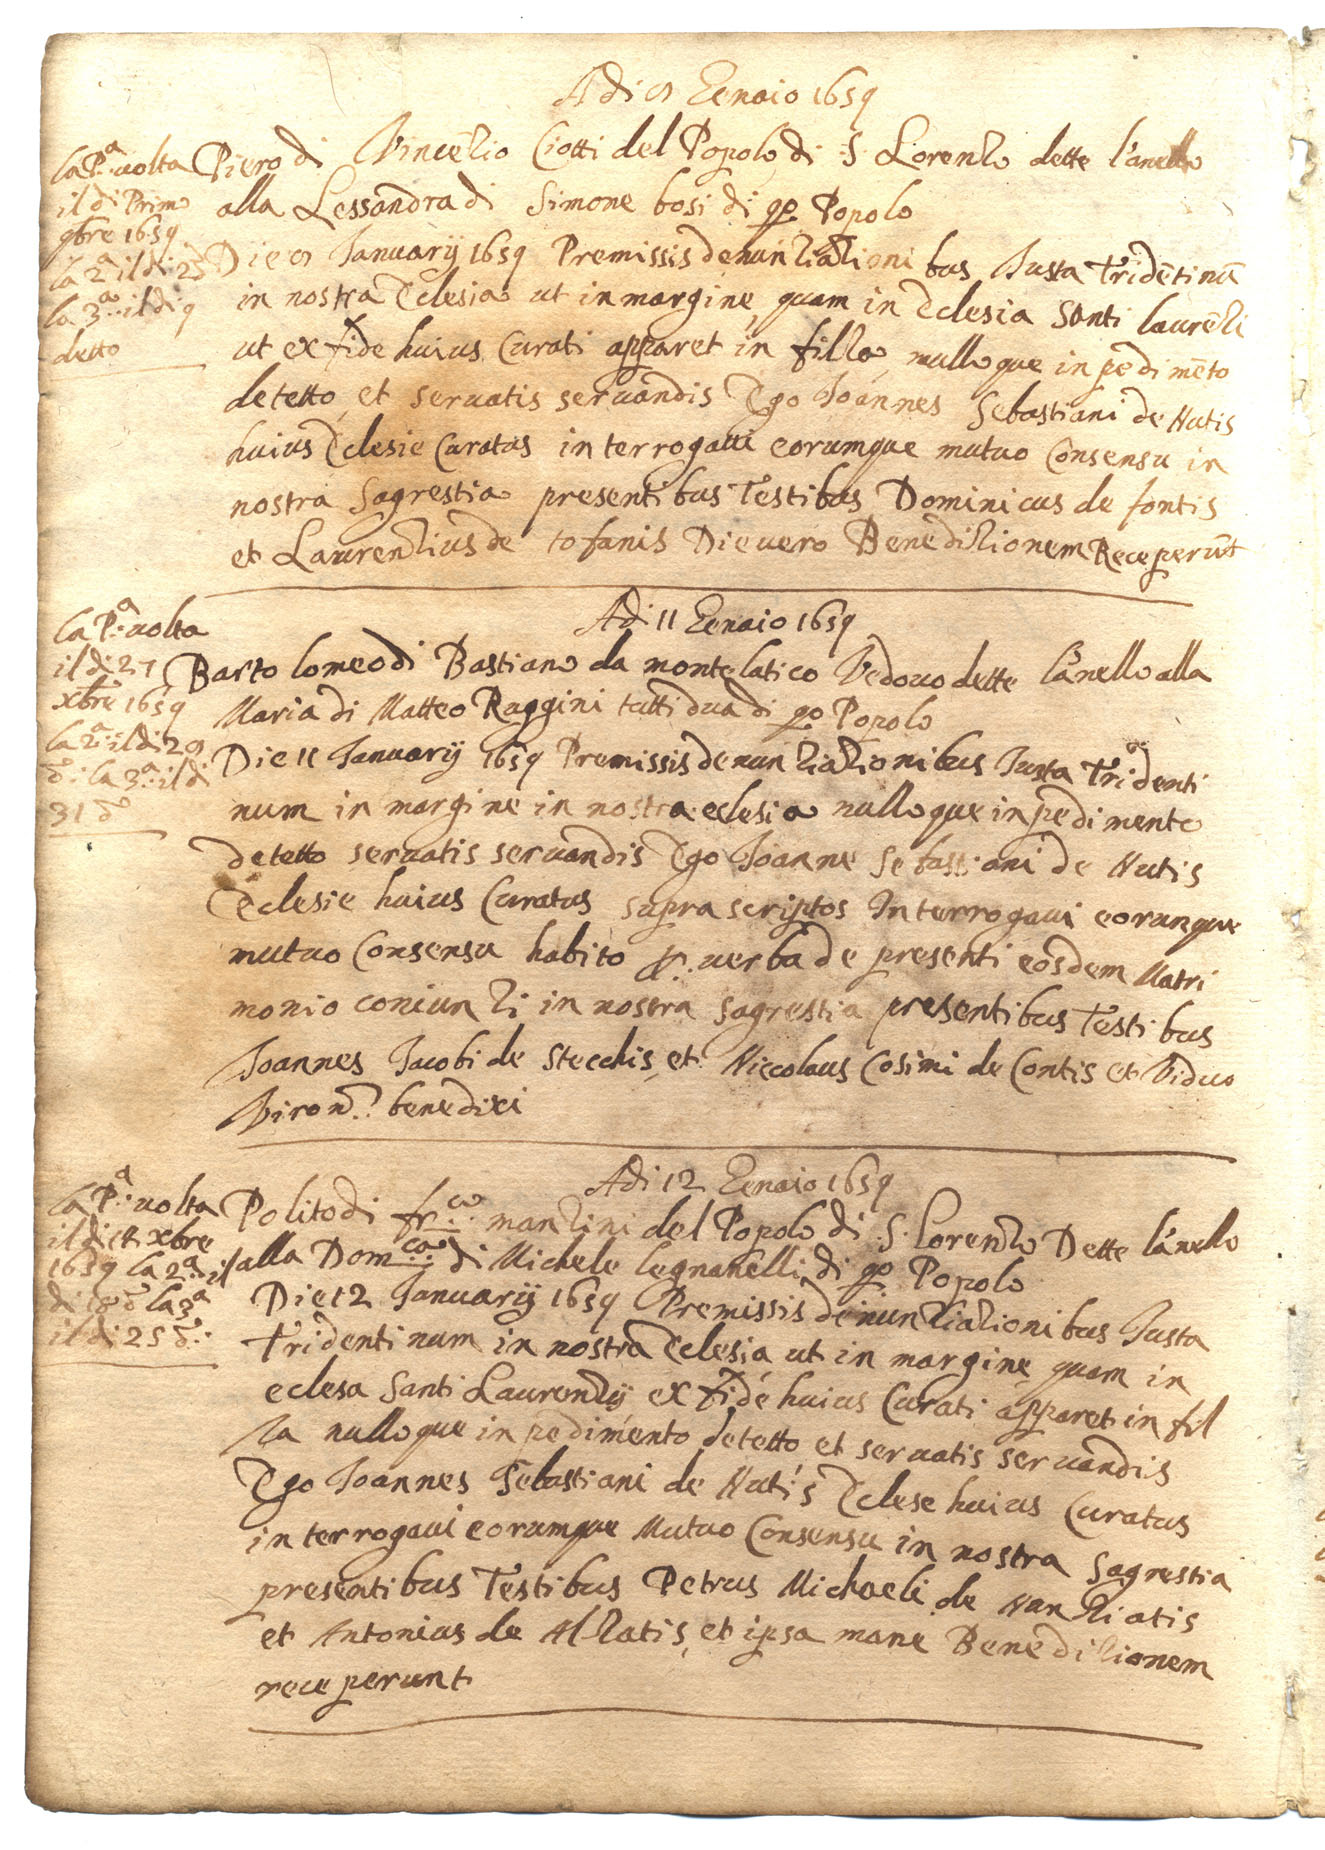 Adi 8 Genaio 1659
la P.ª uolta
il di Primo
9bre 1659
la 2.ª il di 25
la 3.ª il di 9
detto
Piero di Vincēzio Ciotti del Popolo di S. Lorenzo dette l'anello
alla Lessandra di Simone bosi di qo Popolo
Die 8 Januarij 1659 Premissis denunziazionibus Justa Tridētinū
in nostra Eclesia ut in margine quam in Eclesia Santi laurēzi
ut ex fide huius Curati apparet in filza, nulloque inpedimēto
detetto et seruatis seruandis Ego Joannes Sebastiani de Nutis
huius Eclesie Curatus interrogaui eorumque mutuo Consensu in
nostra Sagrestia presentibus Testibus Dominicus de fontis
et Laurenzius de tofanis Die uero Benedizionem Receperūt
Adi 11 Genaio 1659
la P.ª uolta
il di 27
xbre 1659
la 2.ª il di 28
d.º la 3.ª il di
31 d.º
Bartolomeo di Bastiano da montelatico Vedouo dette l'anello alla
Maria di Matteo Raggini tutti dua di qo Popolo
Die 11 Januarij 1659 Premissis denunziazionibus Justa Tridenti
num in margine in nostra eclesia nulloque inpedimento
detetto seruatis seruandis Ego Joanne Sebastiani de Nutis
Eclesie huius Curatus suprascriptos Interrogaui eorunque
mutuo Consensu habito p. uerba de presenti eosdem Matri
monio coniunzi in nostra sagrestia presentibus Testibus
Joannes Jacobi de Stecchis, et Niccolaus Cosimi de Contis et Viduo
Viro n.: benedixi
Adi 12 Genaio 1659
la P.ª uolta
il di xbre
1659 la 2.ª il
di d.º la 3.ª
il di 25 d.º
Polito di fr.co manzini del Popolo di S. Lorenzo Dette l'anello
alla Dom.ca di Michele legnanelli di qo Popolo
Die 12 Januarij 1659 Premissis denunziazionibus Justa
Tridentinum in nostra Eclesia ut in margine quam in
eclesa Santi Laurenzij ex fide huius Curati apparet in fil
za nulloque inpedimento detetto et seruatis seruandis
Ego Joannes Sebastiani de Nutis Eclese huius Curatus
interrogaui eorumque Mutuo Consensu in nostra Sagrestia
presentibus Testibus Petrus Michaeli de Nunziatis
et Antonius de et ipsa mane Benedizionem
receperunt